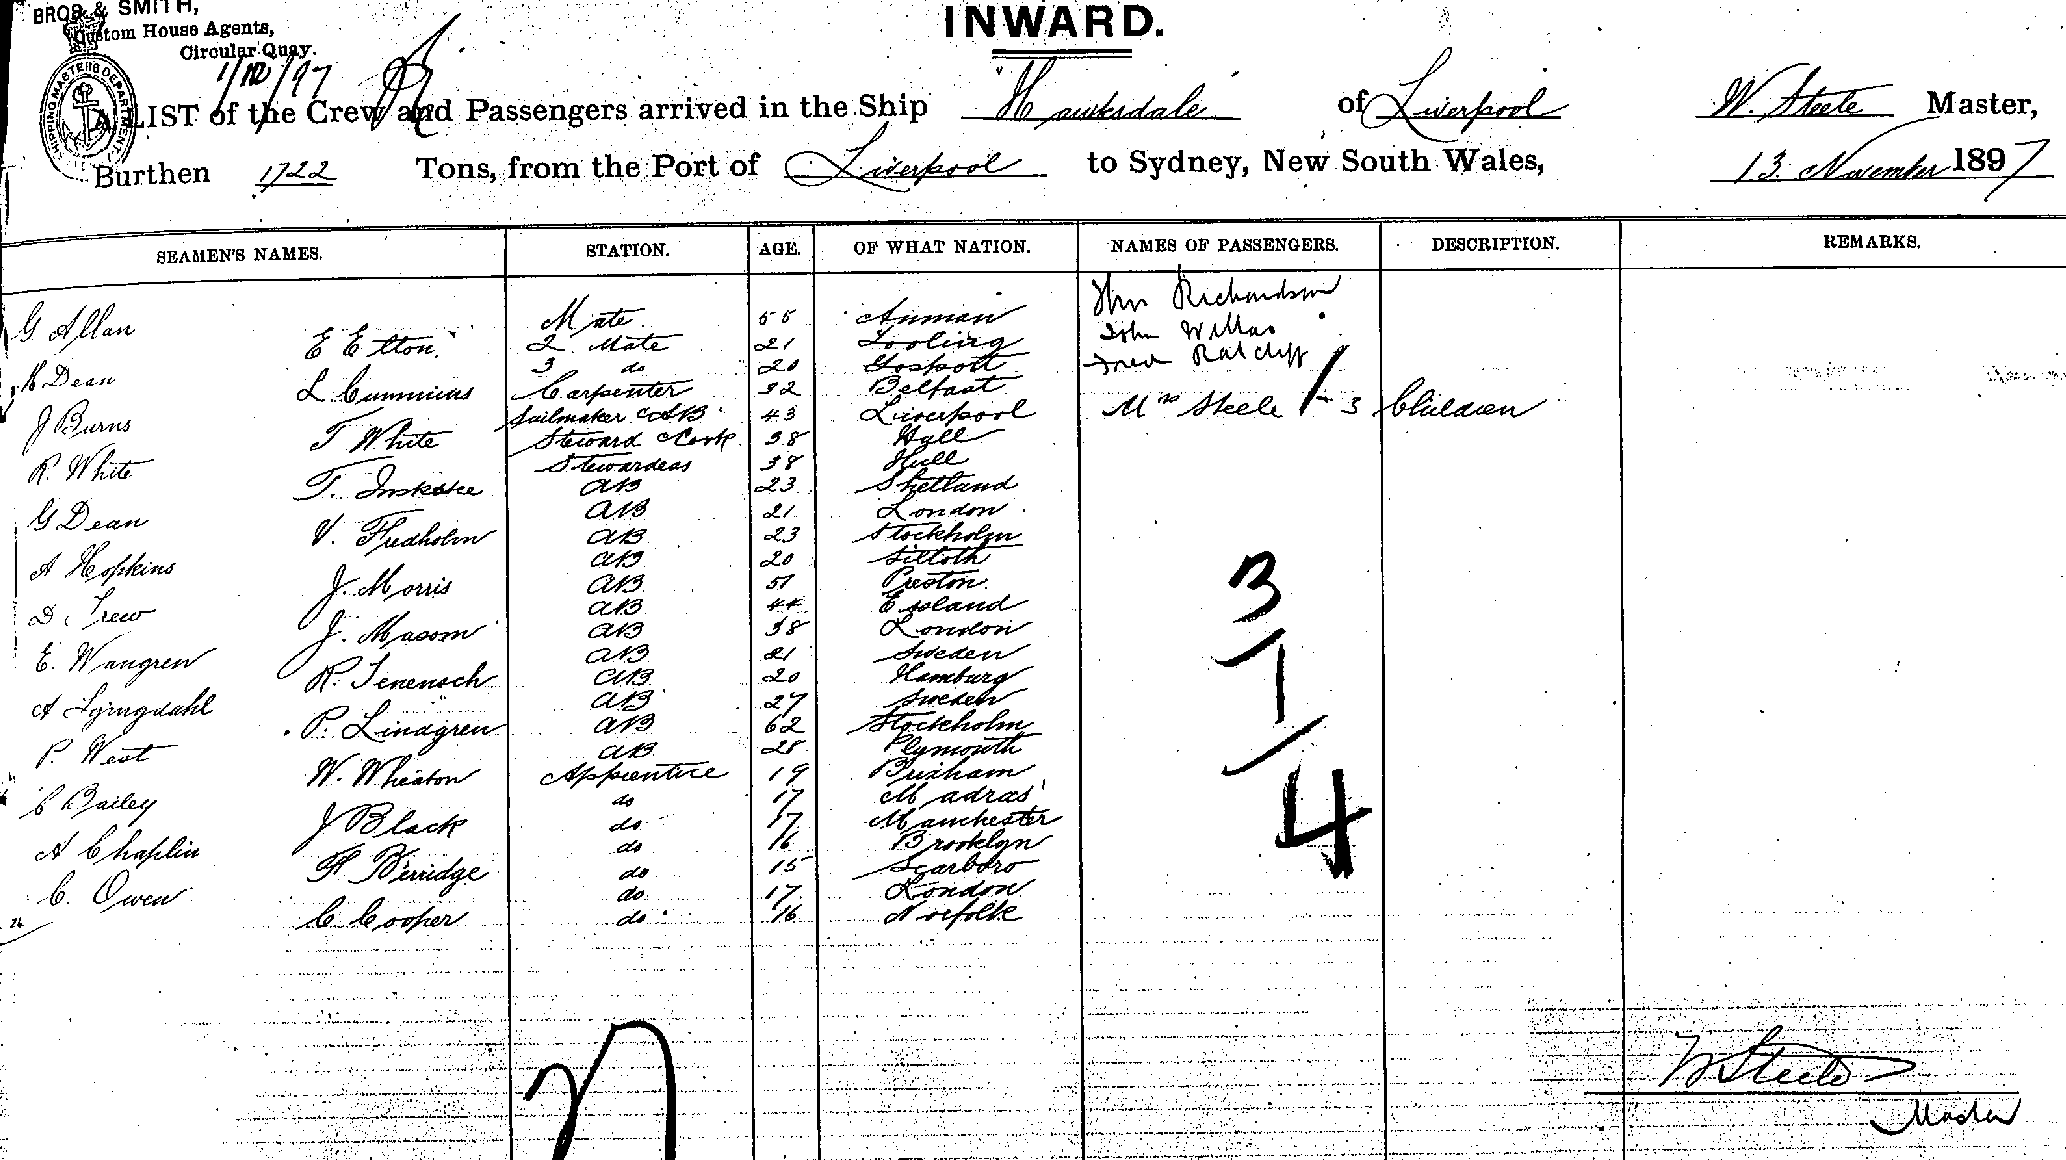 BROS & SMITH,
Custom House Agents,
Circular Quay.
INWARD.
1/12/97
SHIPPING MASTERS DEPARTMENT
A LIST of the Crew and Passengers arrived in the Ship Hawksdale of Liverpool W. Steele Master,
Burthen 1722 Tons, from the Port of Liverpool to Sydney, New South Wales, 13 November 1897
SEAMEN'S NAMES. STATION. AGE. OF WHAT NATION. NAMES OF PASSENGERS. DESCRIPTION. REMARKS.
John Richardson
G Allan Mate 55 Annan
E Elton 2 Mate 21 Tooling John Willas
K Dean 3 do 20 Gosport Fred Ratcliff
L Cummins Carpenter 32 Belfast
J Burns Sailmaker & AB 43 Liverpool Mrs Steele & 3 Children
T White Steward & Cook 38 Hull
R. White Stewardess 38 Hull
T. Inskster AB 23 Shetland
G Dean AB 21 London
V. Fredholm AB 23 Stockholm
A Hopkins AB 20 Silloth
J. Morris AB 51 Preston
D. Trew AB 44 England
J. Masom AB 38 London
E. Wangren AB 21 Sweden
R. Tenensch AB 20 Hamburg
A Ljungdahl AB 27 Sweden
P. Lindgren AB 62 Stockholm
P. West AB 28 Plymouth
W. Wheaton Apprentice 19 Brixham
C Bailey do 17 Madras
J Black do 17 Manchester
A Chaplin do 16 Brooklyn
F Berridge do 15 Scarboro
C. Owen do 17 London
C Cooper do 16 Norfolk
3
1
4
W Steele
Master